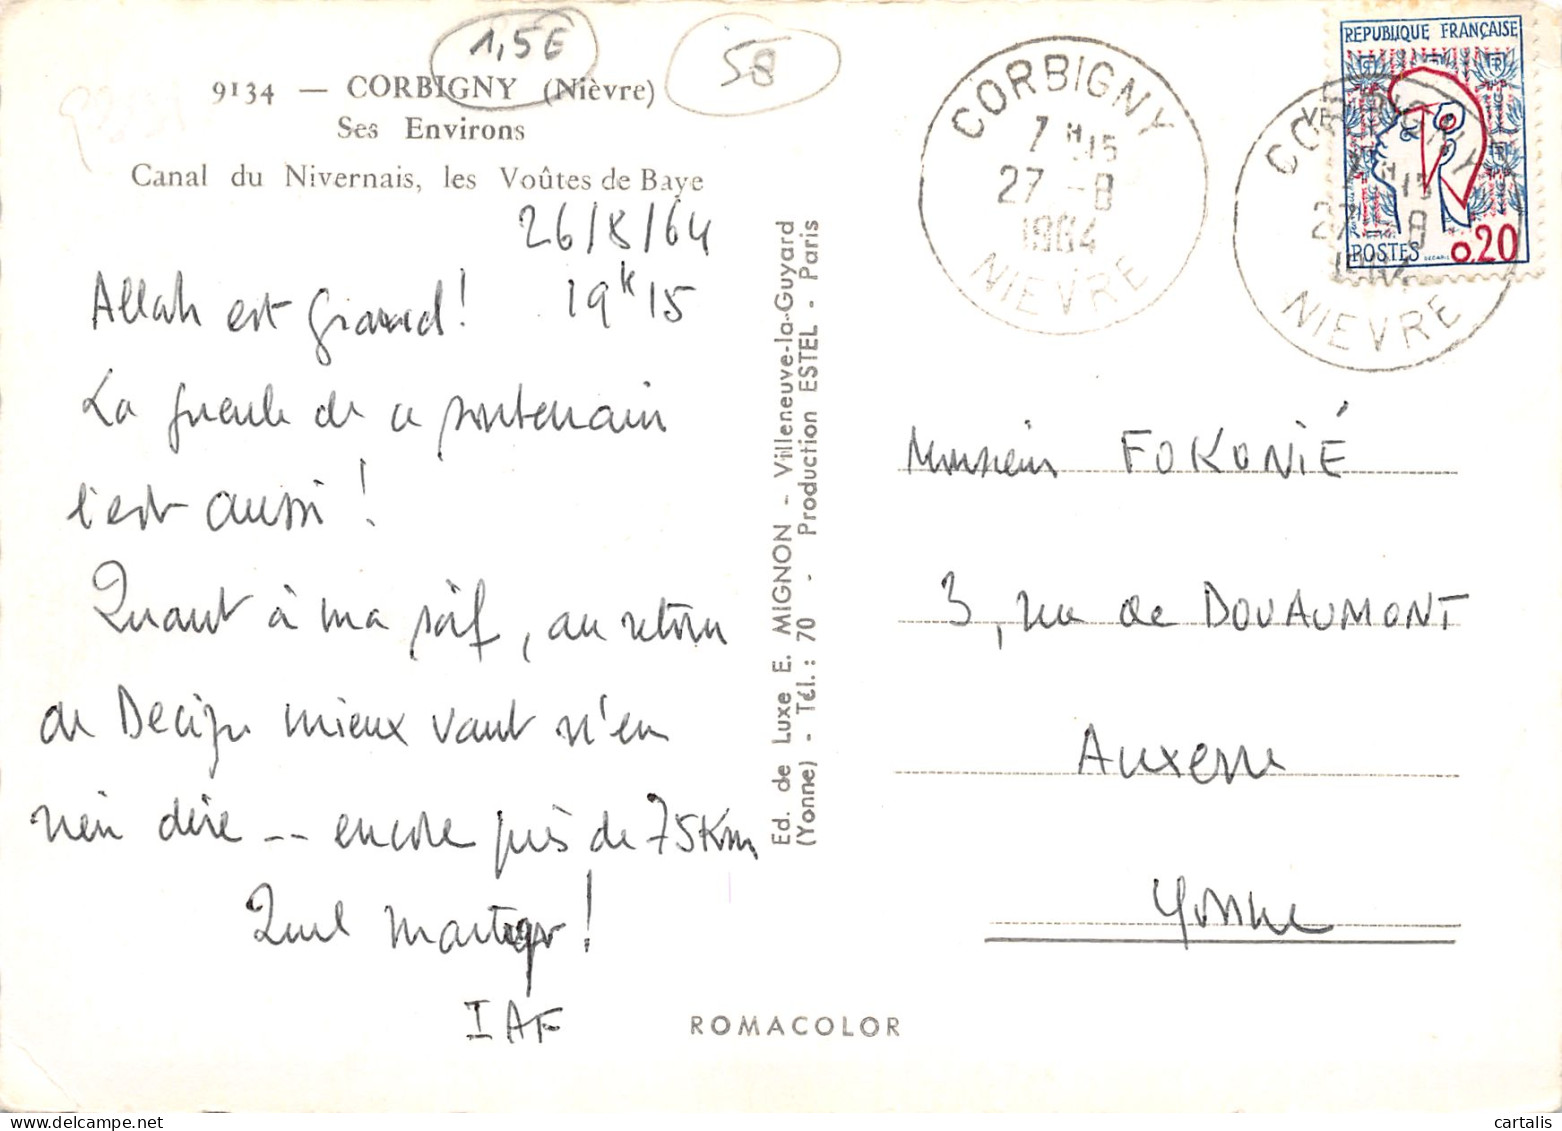 1,5E
58
9134 — CORBIGNY (Nièvre)
Ses Environs
Canal du Nivernais, les Voûtes de Baye
26/8/64
19h15
Allah est grand!
La gueule de ce souterrain
l'est aussi!
Quant à ma soif, au retour
de Decize mieux vaut n'en
rien dire -- encore près de 75Km
Quel martyr!
IAF
Ed. de Luxe E. MIGNON - Villeneuve-la-Guyard
(Yonne) - Tél.: 70 - Production ESTEL - Paris
CORBIGNY
7H15
27-8
1964
NIEVRE
CORBIGNY
7H15
27-8
1964
NIEVRE
REPUBLIQUE FRANÇAISE
RF
POSTES
0,20
Monsieur FOKONIÉ
3, rue de DOUAUMONT
Auxerre
Yonne
ROMACOLOR
www.delcampe.net
cartalis